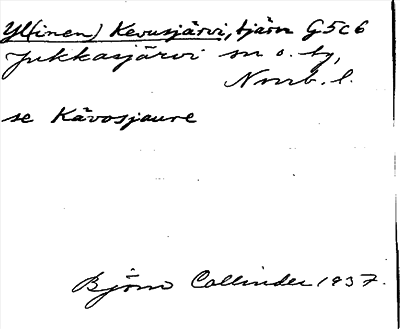 Yl(inen) Kevusjärvi, tjärn G5c6
Jukkasjärvi sn o. tg,
Norrb. l.
se Kävosjaure
Björn Collinder 1937.